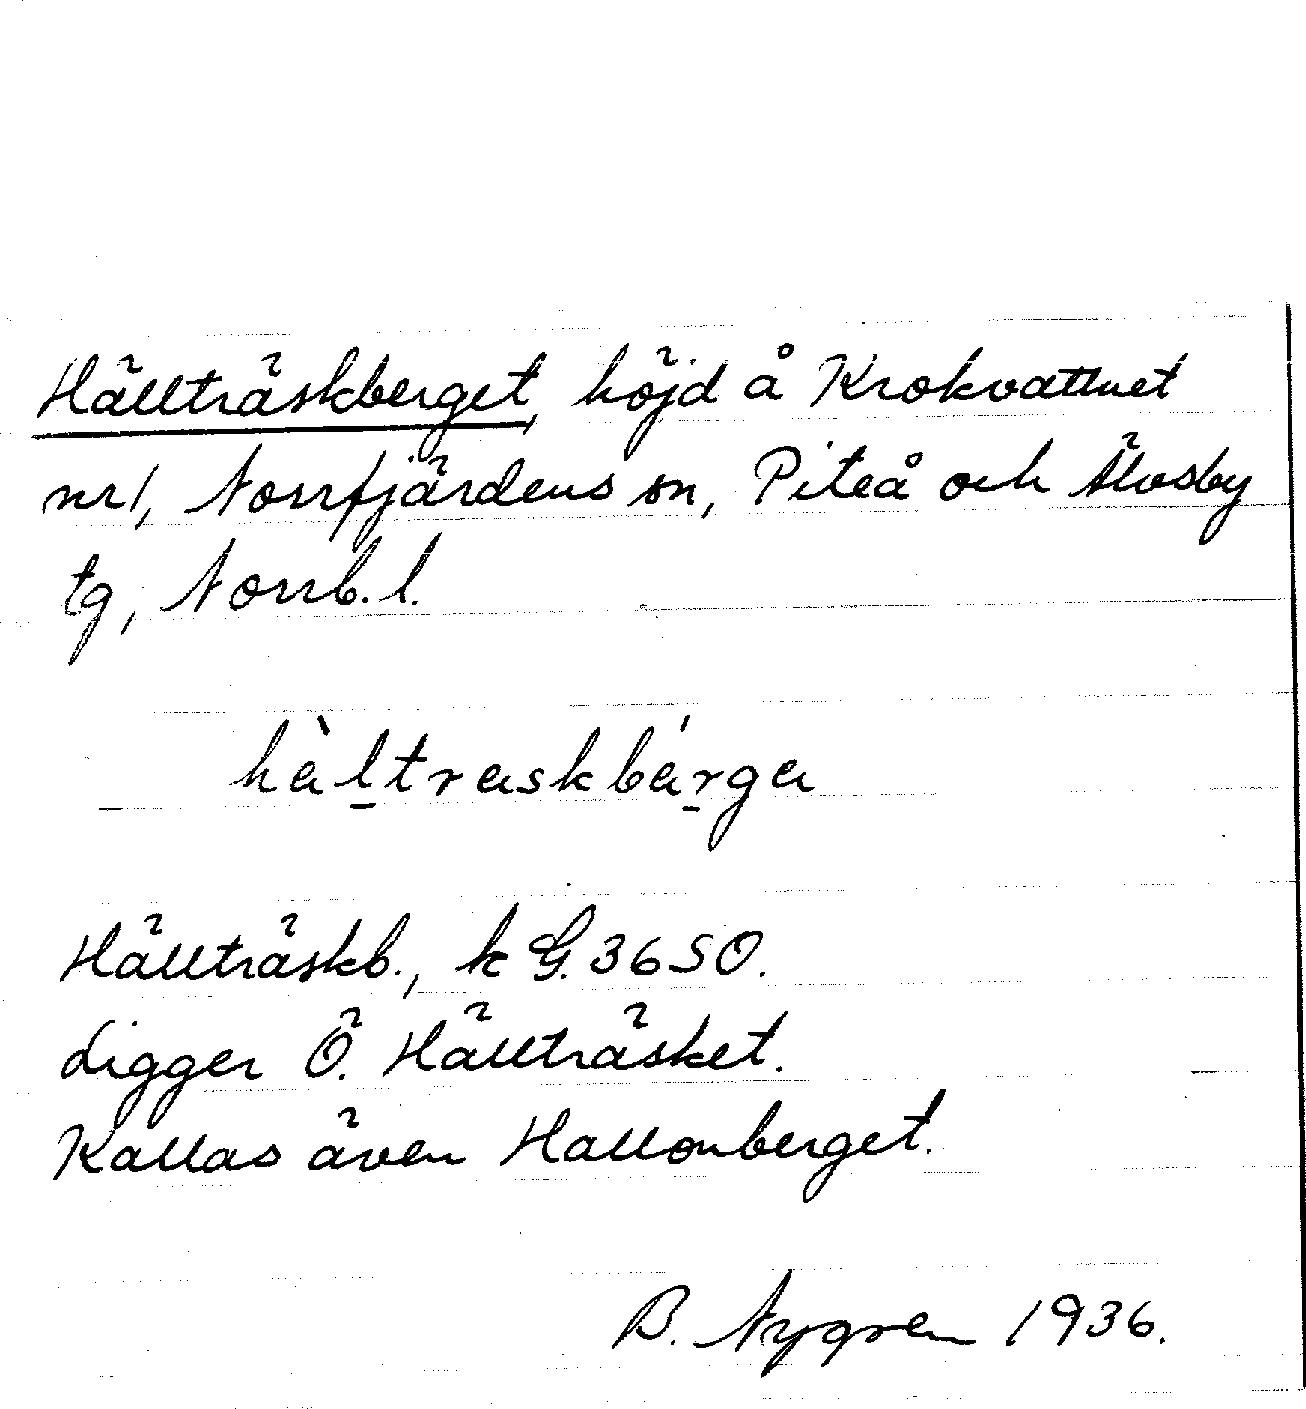 Hällträskberget, höjd å Krokvattnet
nr 1, Norrfjärdens sn, Piteå och Älvsby
tg, Norrb. l.
hàl̠traskbár̠ga
Hällträskb., k G. 36 SO.
Ligger Ö. Hällträsket.
Kallas även Hallonberget.
B. Nygren 1936.